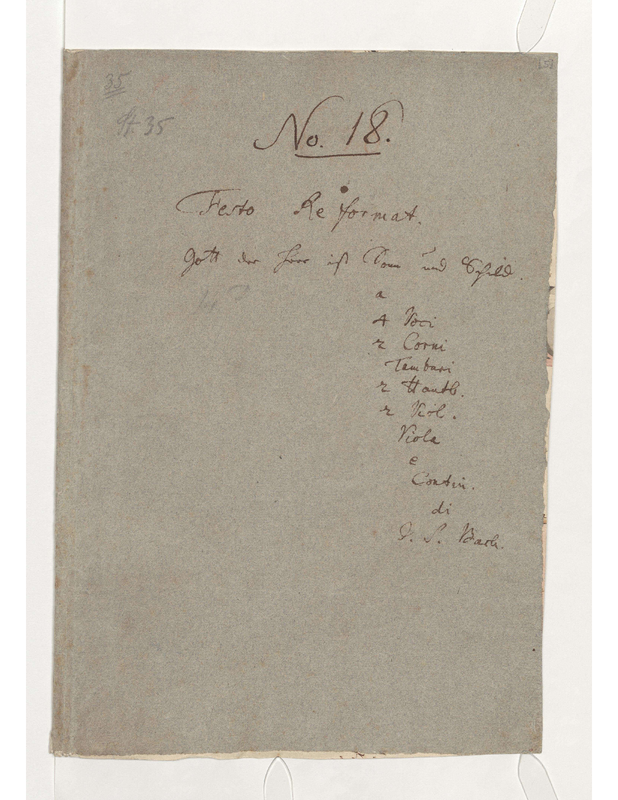 35
St. 35
No. 18.
Festo Reformat.
Gott der Herr ist Sonn und Schild.
a
4 Voci
2 Corni
Tamburi
2 Hautb.
2 Viol.
Viola
e
Contin.
di
J. S. Bach.